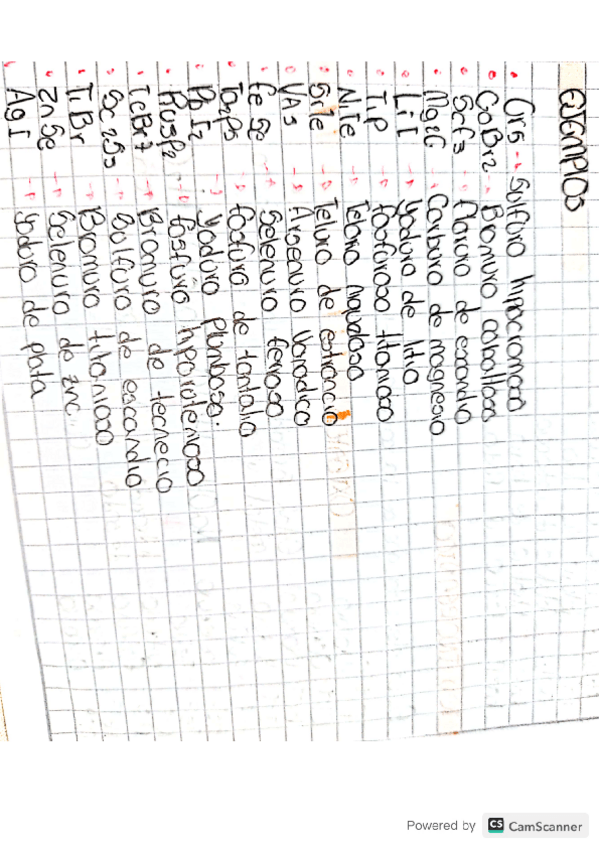 EJEMPLOS
• CrS → Sulfuro hipocromoso
• CoBr2 → Bromuro cobaltoso
• ScF3 → Flururo de escandio
• Mg2C → Carburo de magnesio
• LiI → Yoduro de litio
• TiP → Fosfuroso titanioso
• NiTe → Teluro niqueloso
• SrTe → Teluro de estroncio
• VAs → Arsenuro Vanadico
• FeSe → Selenuro ferroso
• Ta3P5 → Fosfuro de tantalo
• PbI2 → Yoduro plumboso.
• Ru3P2 → Fosfuro hiporutenioso
• TcBr7 → Bromuro de tecnecio
• Sc2S3 → Sulfuro de escandio
• TiBr → Bromuro titanioso
• ZnSe → Selenuro de zinc
• AgI → Yoduro de plata
Powered by CS CamScanner